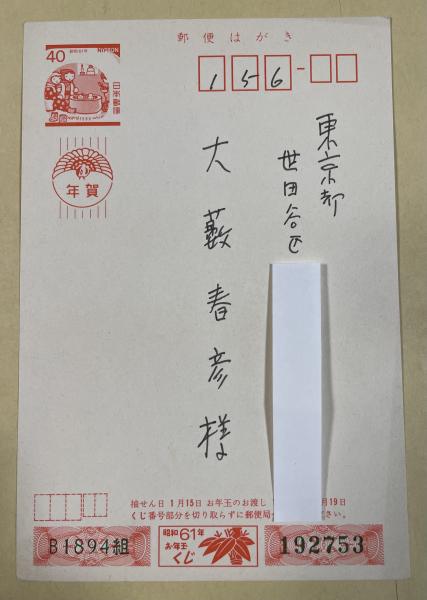 郵便はがき
40
昭和61年
NIPPON
日本郵便
年賀
156-
東京都
世田谷区
大藪春彦様
抽せん日 1月15日 お年玉のお渡し
月19日
くじ番号部分を切り取らずに郵便局
ださい。
B1894組
昭和61年
お年玉
くじ
192753